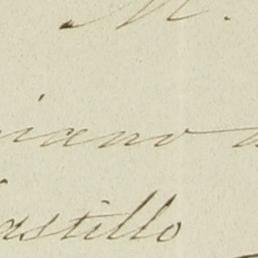 M.
iano
astillo